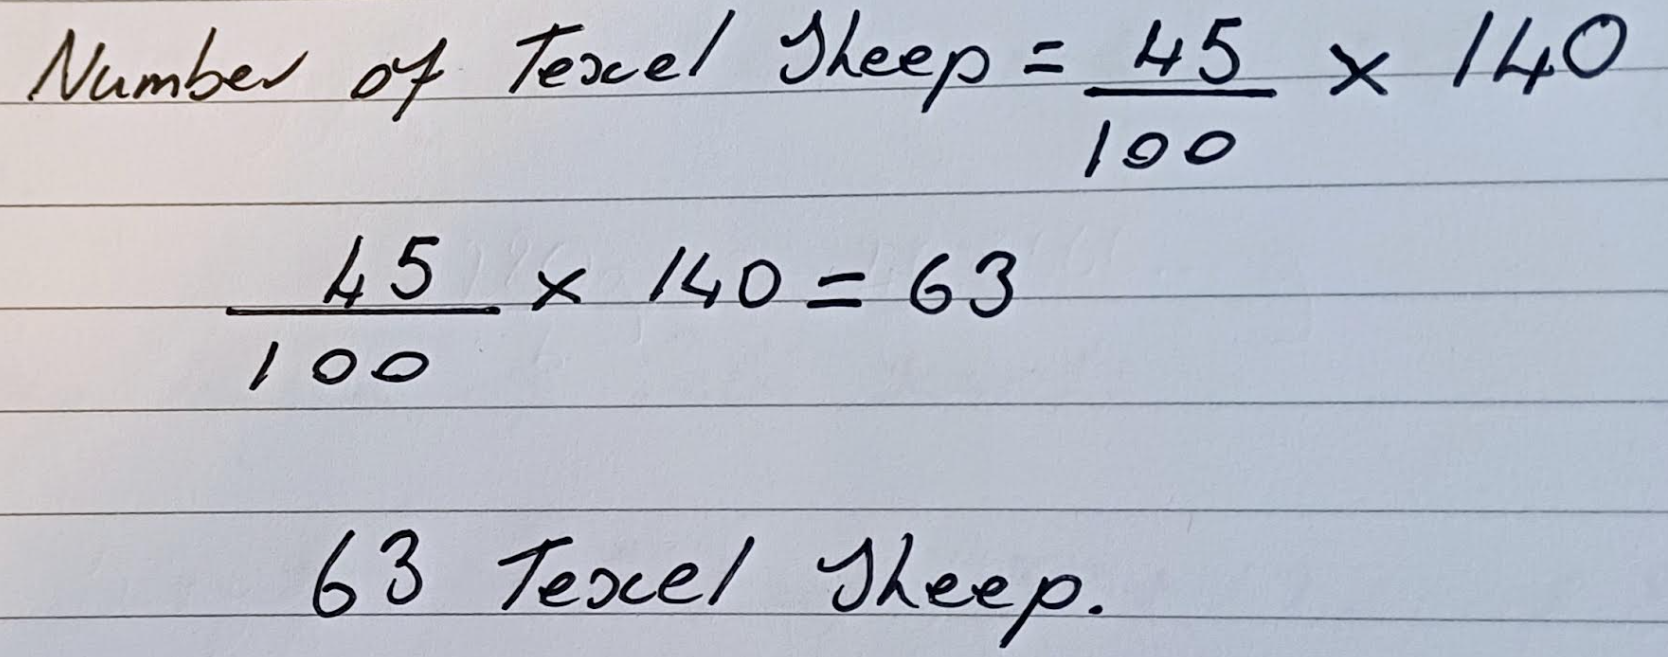 Number of Texel Sheep = 45/100 × 140
45/100 × 140 = 63
63 Texel Sheep.